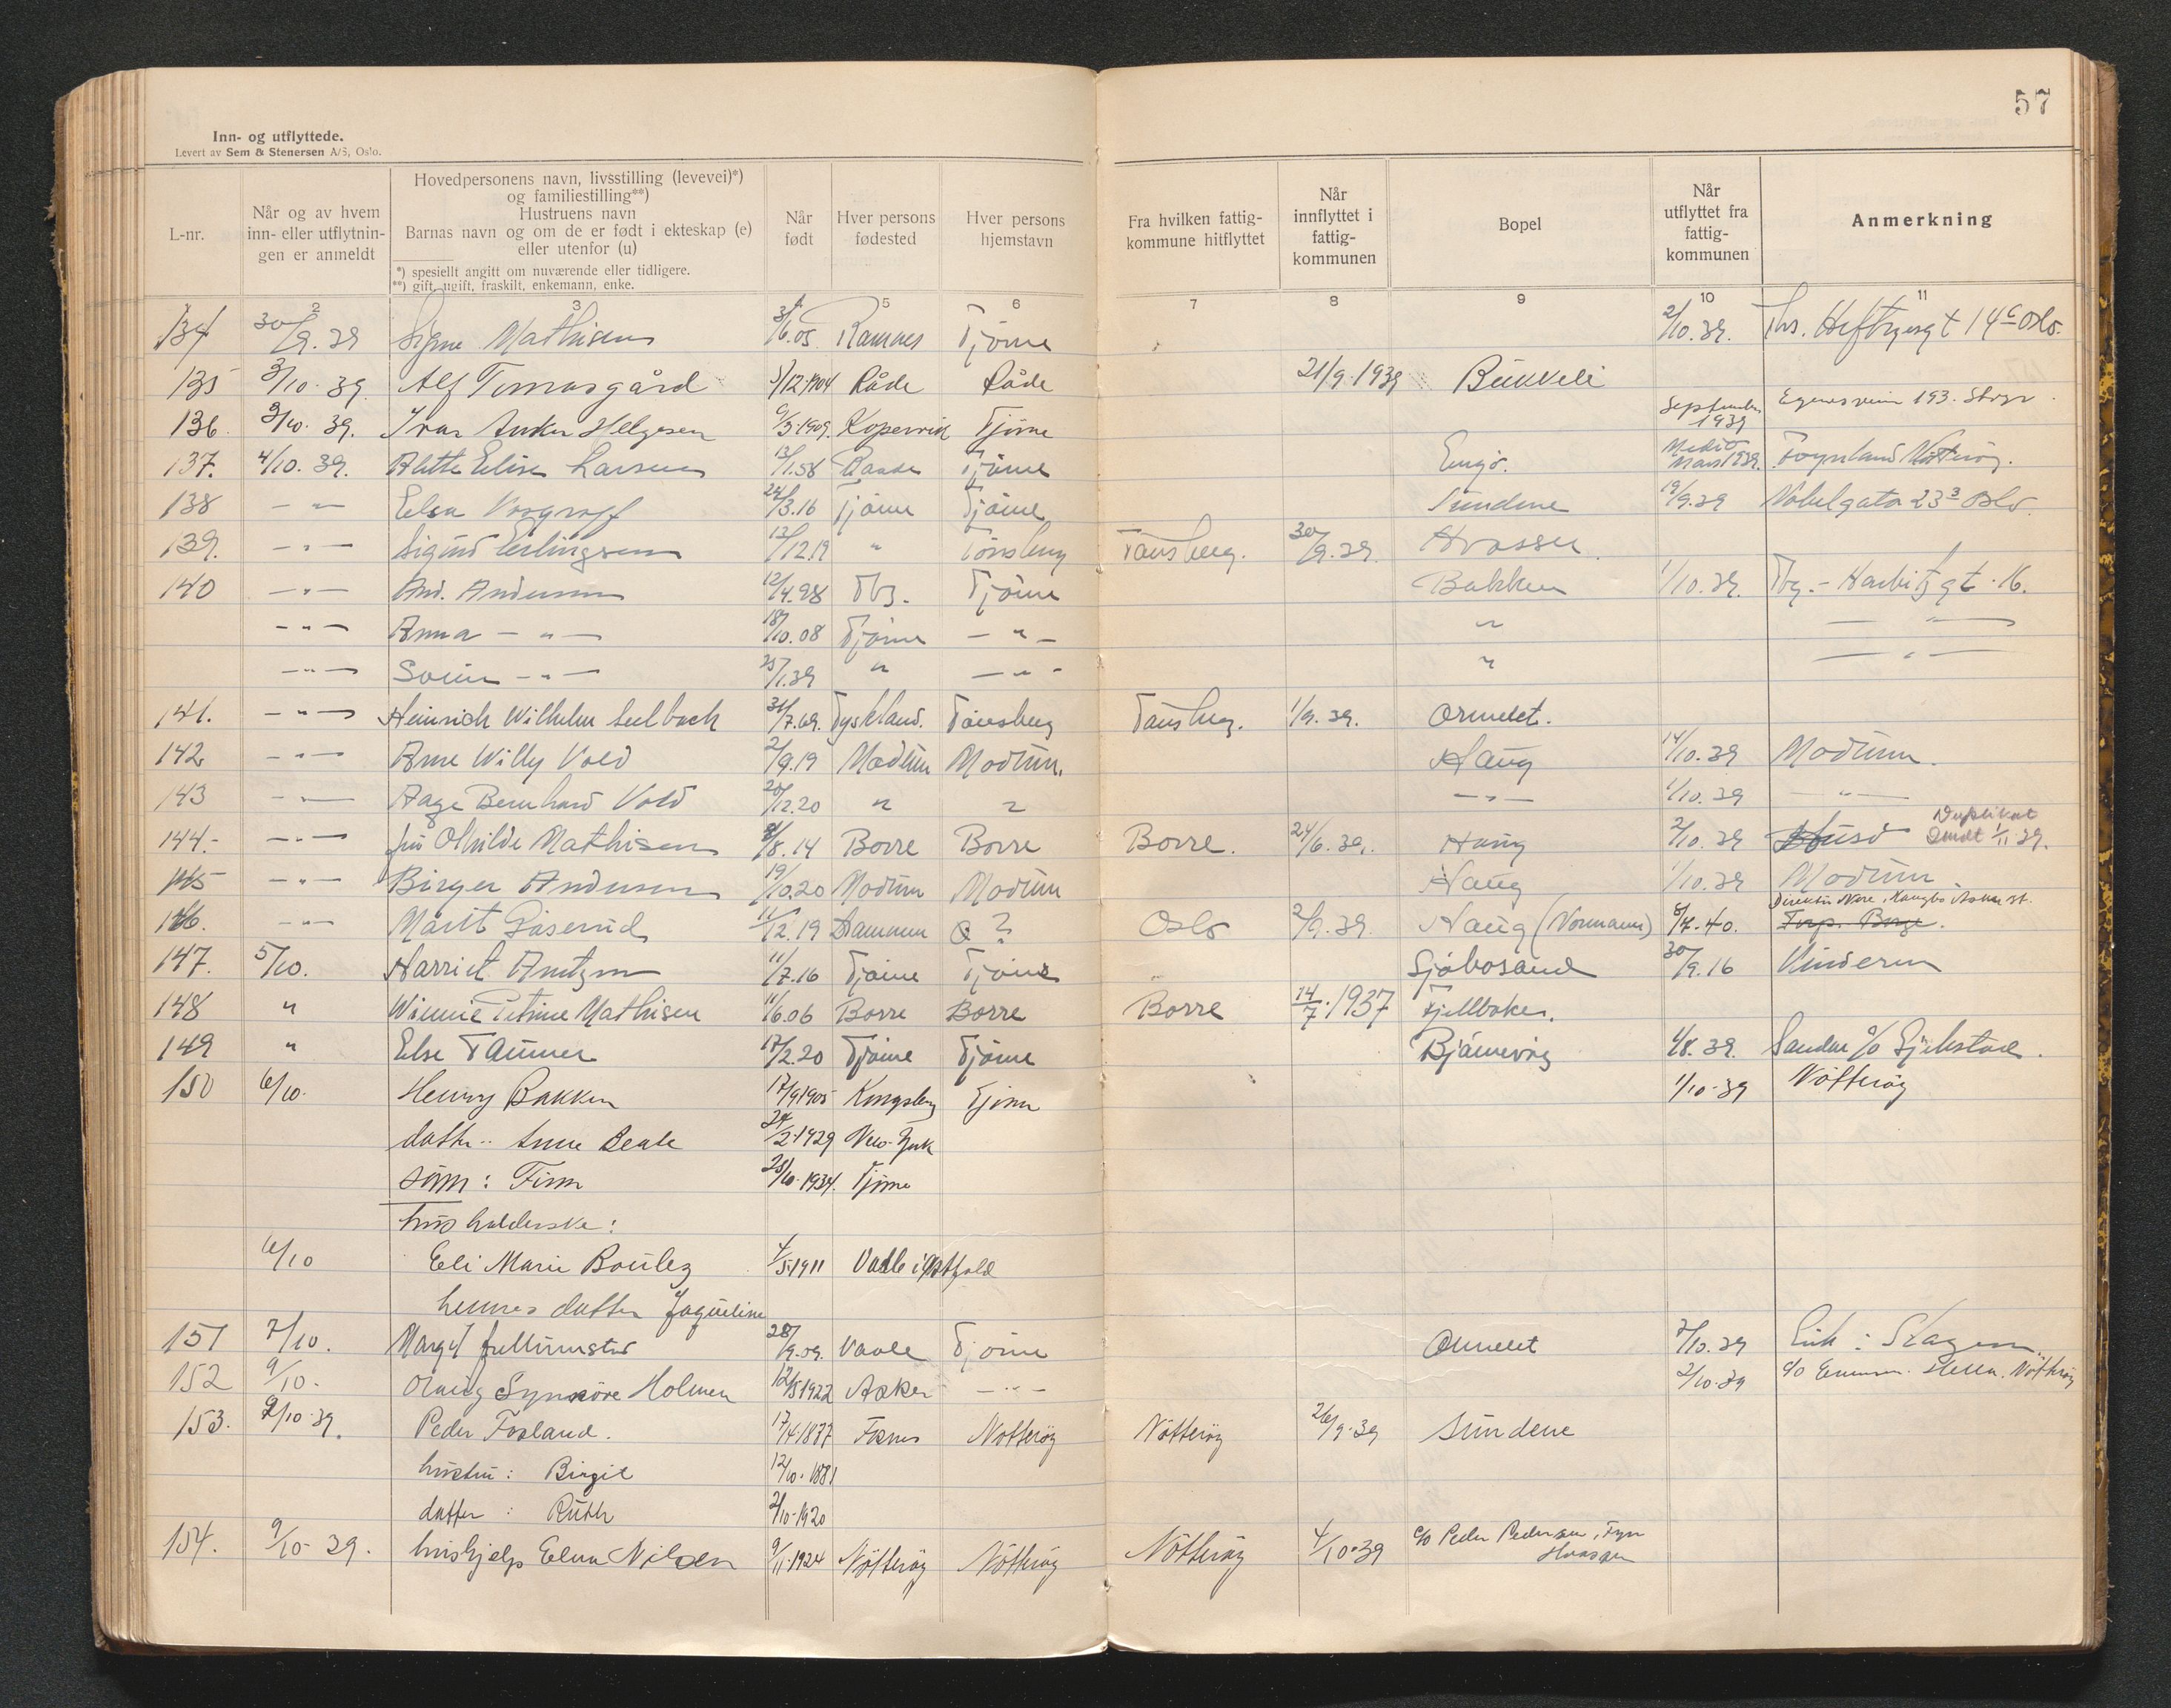 57
Inn- og utflyttede.
Levert av Sem & Stenersen A/S, Oslo.
L-nr.
Når og av hvem inn- eller utflytnin-gen er anmeldt
Hovedpersonens navn, livsstilling (levevei)*)
og familiestilling**)
Hustruens navn
Barnas navn og om de er født i ekteskap (e)
eller utenfor (u)
*) spesiellt angitt om nuværende eller tidligere.
**) gift, ugift, fraskilt, enkemann, enke.
Når født
Hver persons fødested
Hver persons hjemstavn
Fra hvilken fattig-kommune hitflyttet
Når innflyttet i fattig-kommunen
Bopel
Når utflyttet fra fattig-kommunen
Anmerkning
2 3 4 5 6 7 8 9 10 11
134 30/9.39 Signe Mathisen 3/6.05 Ramnes Tjöme 2/10.39. Ths. Heftyesgt 14 c Oslo.
135 3/10.39. Alf Tomasgård 5/12.1904 Råde Råde 21/9.1939 Bükveli
136. 3/10.39. Ivar Anker Helgesen 9/3.1909. Kopervik Tjöme September 1939 Egenesveien 193. Stvgr.
137. 4/10.39. Alette Elise Larsen 13/1.58 Tjöme Engö. Medio Mars 1939. Föynland Nötteröy.
138 - " - Elsa Vosgraff 24/3.16 Tjöme Tjöme Sundene 19/9.39 Nobelgata 23 3 Oslo.
139. - " - Sigurd Erlingsen 13/12.19 " Tönsberg Tönsberg. 30/9.39. Hvasser.
140 - " - And. Andersen 12/4.98 Tbg. Tjöme Bakken 1/10.39. Tbg. - Harbitz gt. 16.
- " - Anna - " - 18/10.08 Tjöme - " - " - " -
- " - Svein - " - 25/1.39 " - " - " - " -
141. - " - Heinrich Wilhelm Seelbach 31/7.69. Tyskland. Tönsberg Tönsberg. 1/9.39. Ormelet.
142 - " - Arne Willy Vold 2/9.19 Modum Modum. Haug 14/10.39 Modum.
143 - " - Aage Bernhard Vold 20/12.20 " " - " - 1/10.39 - " -
144.- - " - fru Olhilde Mathisen 8/8.14 Borre Borre Borre. 24/6.39. Haug 2/10.39 Duplikat sendt 1/11.39.
145 - " - Birger Andersen 19/10.20 Modum Modum Haug 1/10.39 Modum
146. - " - Marit 11/12.19 ? Oslo 2/9.39. Haug (Normann) 8/7.40. Direktör Nere, Asker st.
147. 5/10. Harriet Arntzen 11/7.16 Tjöme Tjöme Sjöbosand 30/9.16 Vinderen
148 " Winnie Petrine Mathisen 11/6.06 Borre Borre Borre 14/7.1937 Fjellbaken.
149 " Else Taumer 17/2.20 Tjöme Tjöme Bjärnevåg 1/8.39. Sandar c/o
150 6/10. Henry Bakken 17/9.1905 Kongsberg Tjöme 1/10.39 Nötteröy
datter: Anne Beate 24/2.1929 New-York
sönn: Finn 28/10.1934. Tjöme
husholderske:
6/10 Eli Marie Boulez 4/5.1911 Vaale i Vestfold
hennes datter Jaqueline
151 7/10. Margit 28/9.09. Vaale Tjöme Ormelet 7/10.39 Eik: Skagen.
152 9/10. Olaug Synnöve Holmen 12/5.1922 Asker - " - 2/10.39 c/o Nötteröy
153. 9/10.39. Peder Fosland. 17/4.1877 Nötteröy Nötteröy 26/9.39 Sundene
hustru: Birgit 12/10.1881
datter: Ruth 2/10.1920
154. 9/10-39. hushjelp Elna Nilsen 9/11.1924 Nötteröy Nötteröy Nötteröy 4/10.39 c/o Peder Pedersen, Fyn
Hvasser